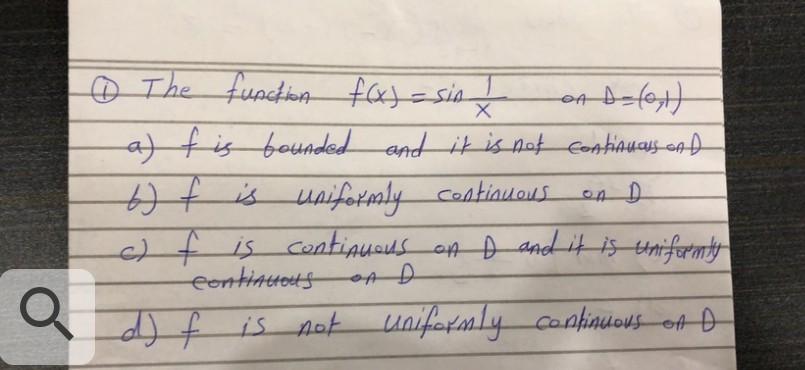 ① The function f(x) = sin 1/x on D=(0,1)
a) f is bounded and it is not continuous on D
b) f is uniformly continuous on D
c) f is continuous on D and it is uniformly
continuous on D
d) f is not uniformly continuous on D